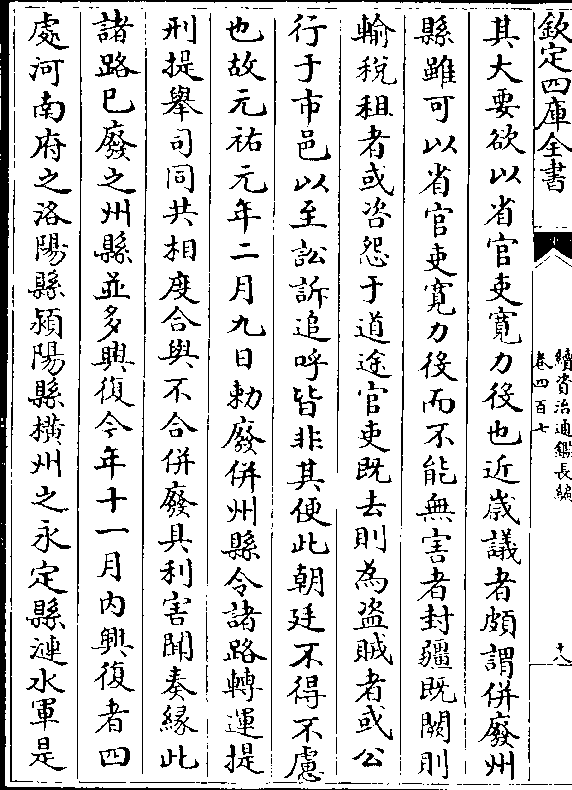 欽定四庫全書
續資治通鑑長編
卷四百七
十八
其大要欲以省官吏寛力役也近嵗議者頗謂併廢州
縣雖可以省官吏寛力役而不能無害者封疆既闊則
輸稅租者或咨怨于道途官吏既去則為盗賊者或公
行于市邑以至訟訴追呼皆非其便此朝廷不得不慮
也故元祐元年二月九日勅廢併州縣令諸路轉運提
刑提舉司同共相度合與不合併廢具利害聞奏緣此
諸路已廢之州縣並多興復今年十一月內興復者四
處河南府之洛陽縣潁陽縣横州之永定縣漣水軍是